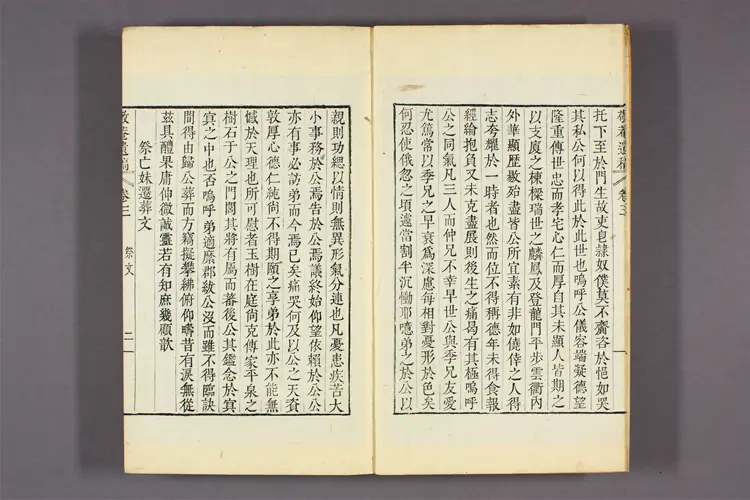 托下至於門生故吏皂隷奴僕莫不齎咨於悒如哭
其私公何以得此於此世也嗚呼公儀容端凝德望
隆重傳世忠而孝宅心仁而厚自其未顯人皆期之
以支廈之棟樑瑞世之麟鳳及登龍門平步雲衢內
外華顯歷敭殆盡皆公所宜素有非如僥倖之人得
志夸耀於一時者也然而位不得稱德年未得食報
經綸抱負又未克盡展則後生之痛曷有其極嗚呼
公之同氣凡三人而仲兄不幸早世公與季兄友愛
尤篤常以季兄之早衰爲深慮每相對憂形於色矣
何忍使俄忽之頃遽當割半沉慟耶噫弟之於公以
親則功緦以情則無異形氣分連也凡憂患疾苦大
小事務於公焉告於公焉議終始仰望依賴於公公
亦有事必訪弟而今焉已矣痛哭何及以公之天資
敦厚心德仁純尙不得期頤之享弟於此亦不能無
憾於天理也所可慰者玉樹在庭尙克傳家平泉之
樹石于公之門閭其將有屬而蕃後公其鑑念於冥
冥之中也否嗚呼弟適縻郡紱公沒而雖不得臨訣
間得由歸公葬而方竊擬攀紼俯仰疇昔有淚無從
玆具醴果庸伸微諴靈若有知庶幾顧歆
祭亡妹遷葬文
卷三
祭文
二
遺稿
卷三